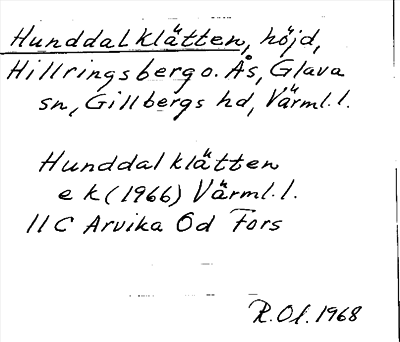 Hunddalklätten, höjd,
Hillringsberg o. Ås, Glava
sn, Gillbergs hd, Värml. l.
Hunddalklätten
e k (1966) Värml. l.
11C Arvika Od Fors
R. Ol. 1968